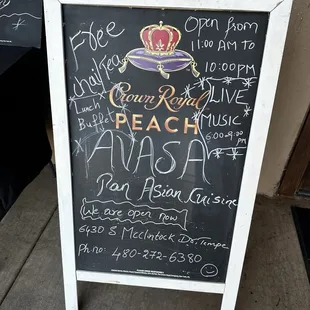 Free
chai tea
Lunch
Buffet
Open from
11:00 AM to
10:00 PM
LIVE
MUSIC
6:00-9:00
pm
Crown Royal
PEACH
AVASA
Pan Asian Cuisine
We are open now
6430 S Mcclintock Dr, Tempe
Ph.no: 480-272-6380